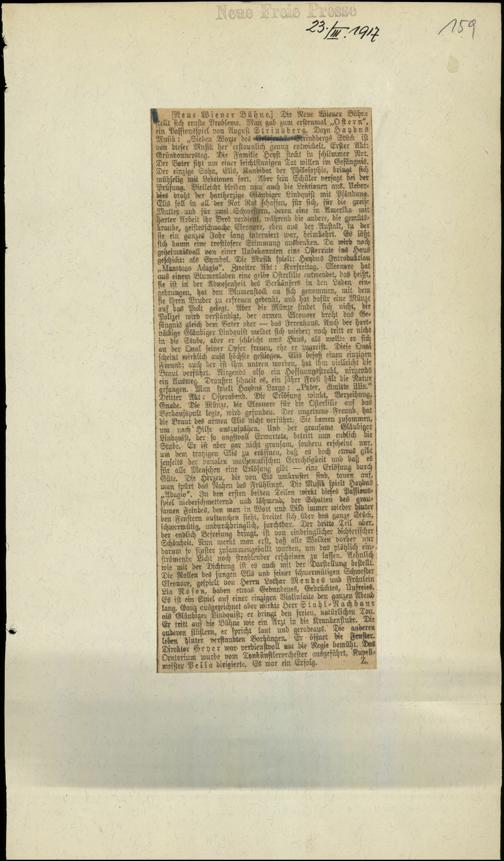 Neue Freie Presse
23./III. 1917
159
[Neue Wiener Bühne.] Die Neue Wiener Bühne
stellt sich ernste Probleme. Man gab zum erstenmal „Ostern",
ein Passionsspiel von August Strindberg. Dazu Haydns
Musik: „Sieben Worte des Strindbergs Stück ist
von dieser Musik her erstaunlich genau entwickelt. Erster Akt:
Gründonnerstag. Die Familie Heyst steckt in schlimmer Not.
Der Vater sitzt um einer leichtsinnigen Tat willen im Gefängnis.
Der einzige Sohn, Elis, Kandidat der Philosophie, bringt sich
mühselig mit Lektionen fort. Aber sein Schüler versagt bei der
Prüfung. Vielleicht bleiben nun auch die Lektionen aus. Ueber-
dies droht der hartherzige Gläubiger Lindquist mit Pfändung.
Elis soll in all der Not Rat schaffen, für sich, für die greise
Mutter und für zwei Schwestern, deren eine in Amerika mit
harter Arbeit ihr Brot verdient, während die andere, die gemüts-
kranke, geistesschwache Eleonore, eben aus der Anstalt, in der
sie ein ganzes Jahr lang interniert war, heimkehrt. Es läßt
sich kaum eine trostlosere Stimmung ausdenken. Da wird noch
geheimnisvoll von einer Unbekannten eine Osterrute ins Haus
geschickt: als Symbol. Die Musik spielt: Haydns Introduktion
„Maestoso Adagio". Zweiter Akt: Karfreitag. Eleonore hat
aus einem Blumenladen eine gelbe Osterlilie entwendet, das heißt,
sie ist in der Abwesenheit des Verkäufers in den Laden ein-
gedrungen, hat den Blumenstock an sich genommen, mit dem
sie ihren Bruder zu erfreuen gedenkt, und hat dafür eine Münze
auf das Pult gelegt. Aber die Münze findet sich nicht, die
Polizei wird verständigt, der armen Eleonore droht das Ge-
fängnis gleich dem Vater oder — das Irrenhaus. Auch der hart-
näckige Gläubiger Lindquist meldet sich wieder; noch tritt er nicht
in die Stube, aber er schleicht ums Haus, als wollte er sich
an der Qual seiner Opfer freuen, ehe er zugreift. Diese Qual
scheint wirklich aufs höchste gestiegen. Elis besaß einen einzigen
Freund; auch der ist ihm untreu worden, hat ihm vielleicht die
Braut verführt. Nirgends also ein Hoffnungsstrahl, nirgends
ein Ausweg. Draußen schneit es, ein jäher Frost hält die Natur
gefangen. Man spielt Haydns Largo: „Pater, dimitte illis."
Dritter Akt: Osterabend. Die Erlösung winkt, Verzeihung,
Gnade. Die Münze, die Eleonore für die Osterlilie auf das
Verkaufspult legte, wird gefunden. Der ungetreue Freund, hat
die Braut des armen Elis nicht verführt. Sie kamen zusammen,
um nach Hilfe auszuspähen. Und der grausame Gläubiger
Lindquist, der so angstvoll Erwartete, betritt nun endlich die
Stube. Er ist aber gar nicht grausam, sondern erscheint nur,
um dem trotzigen Elis zu eröffnen, daß es doch etwas gibt
jenseits der banalen mathematischen Gerechtigkeit und daß es
für alle Menschen eine Erlösung gibt — eine Erlösung durch
Güte. Die Herzen, die von Eis umkrustet sind, tauen auf,
man spürt das Nahen des Frühlings. Die Musik spielt Haydns
„Adagio". In den ersten beiden Teilen wirkt dieses Passions-
spiel niederschmetternd und lähmend, der Schatten des grau-
samen Feindes, den man in Wort und Bild immer wieder hinter
den Fenstern auftauchen sieht, breitet sich über das ganze Stück,
schwermütig, undurchdringlich, furchtbar. Der dritte Teil aber,
der endlich Befreiung bringt, ist von eindringlicher dichterischer
Schönheit. Nun merkt man erst, daß alle Wolken vorher nur
darum so finster zusammengeballt wurden, um das plötzlich ein-
strömende Licht noch strahlender erscheinen zu lassen. Aehnlich
wie mit der Dichtung ist es auch mit der Darstellung bestellt.
Die Rollen des jungen Elis und seiner schwermütigen Schwester
Eleonore, gespielt von Herrn Lothar Mendes und Fräulein
Lia Rosen, haben etwas Gebundenes, Gedrücktes, Unfreies.
Es ist ein Spiel auf einer einzigen Violinsaite den ganzen Abend
lang. Ganz ausgezeichnet aber wirkte Herr Stahl-Nachbaur
als Gläubiger Lindquist; er bringt den freien, natürlichen Ton.
Er tritt auf die Bühne wie ein Arzt in die Krankenstube. Die
anderen flüstern, er spricht laut und geradeaus. Die anderen
leben hinter verhangten Vorhängen. Er öffnet die Fenster.
Direktor Geyer war verdienstvoll um die Regie bemüht. Das
Oratorium wurde vom Tonkünstlerorchester ausgeführt, Kapell-
meister Pella dirigierte. Es war ein Erfolg. Z.